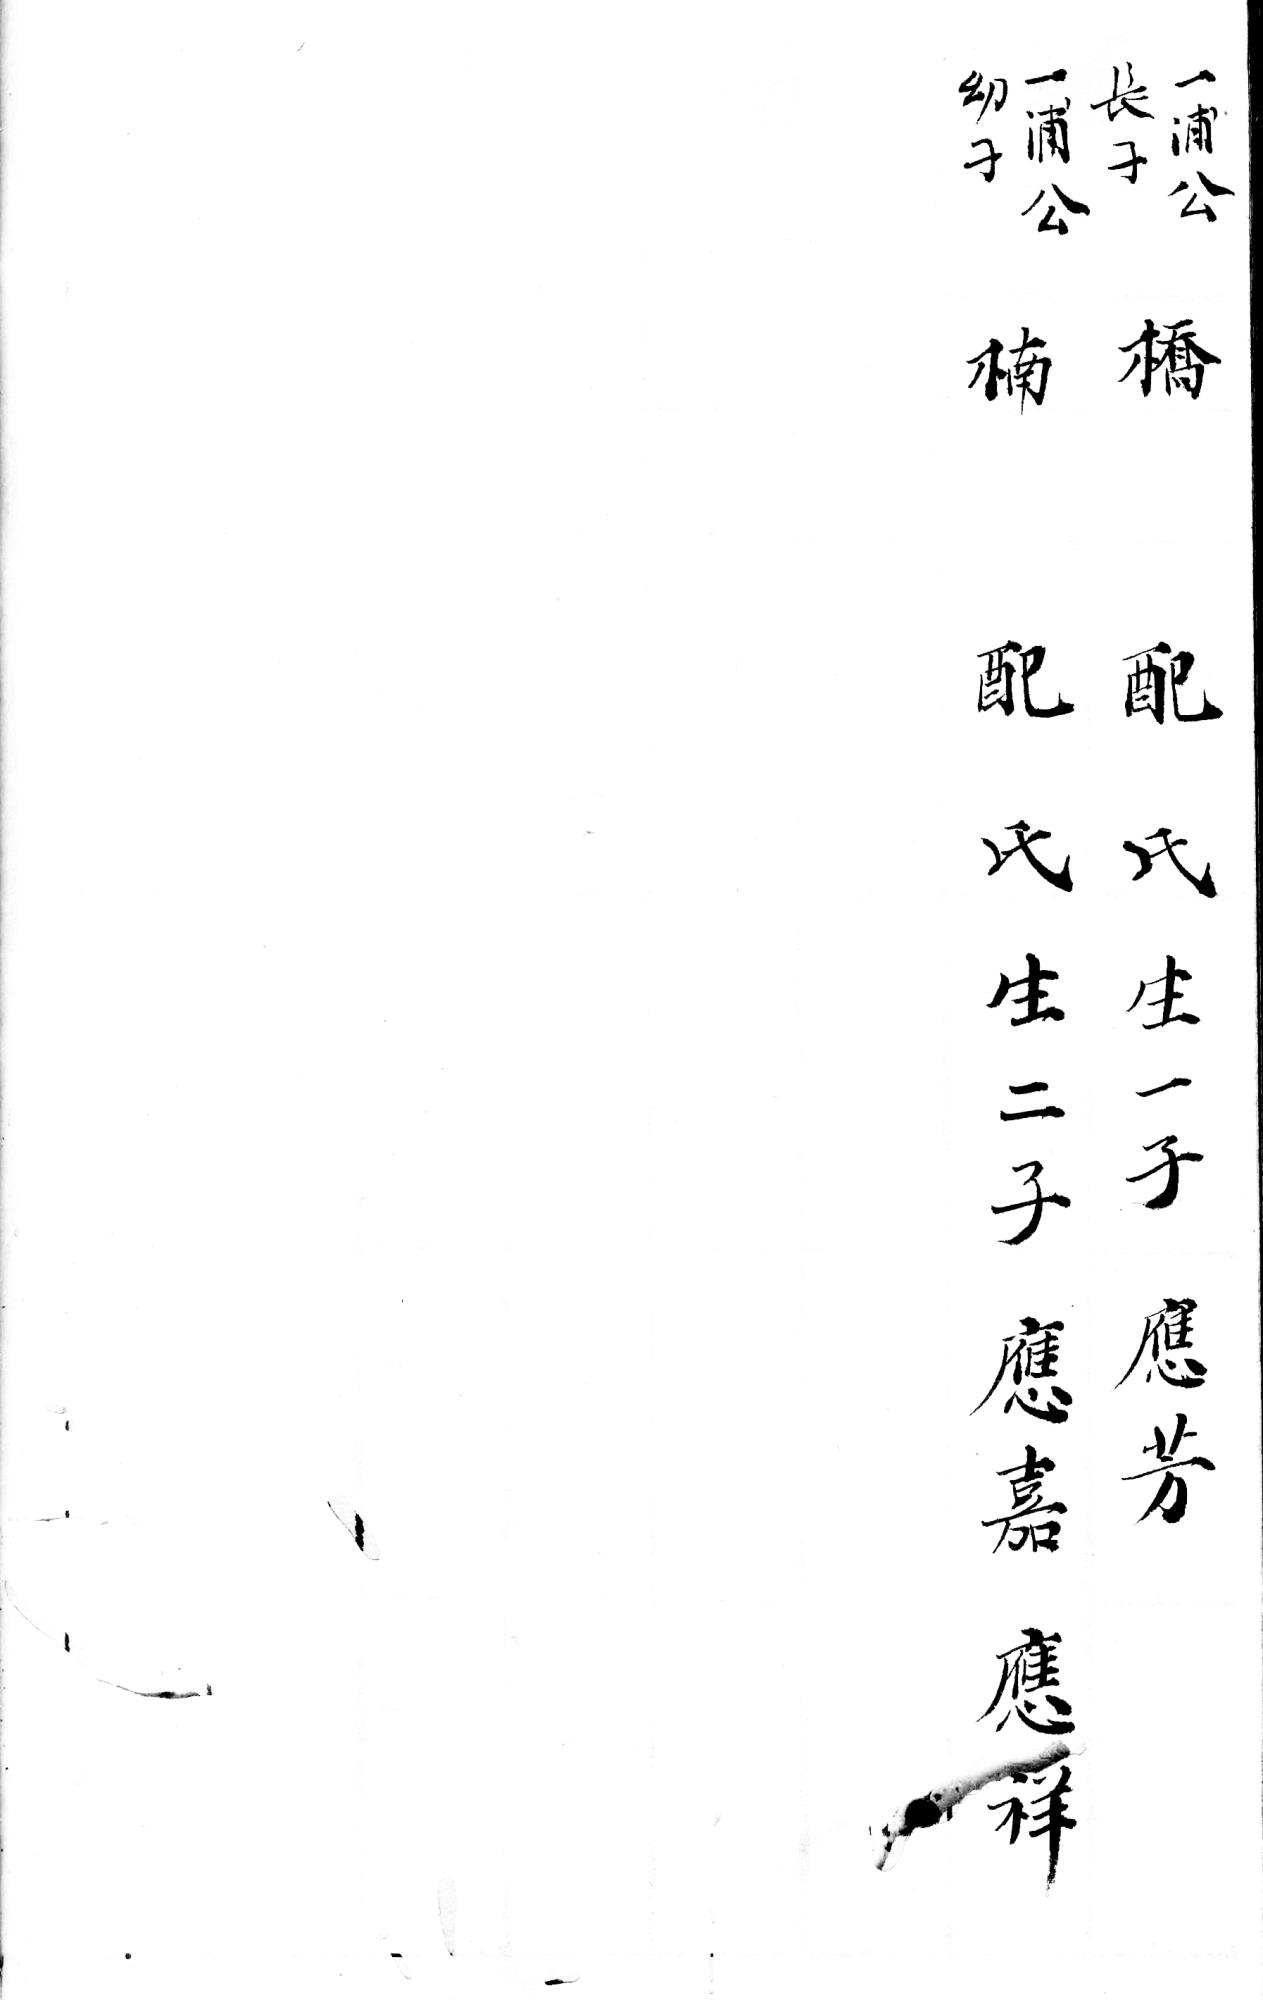 一浦公
長子
橋　配　氏生一子　應芳
一浦公
幼子
楠　配　氏生二子　應嘉　應祥